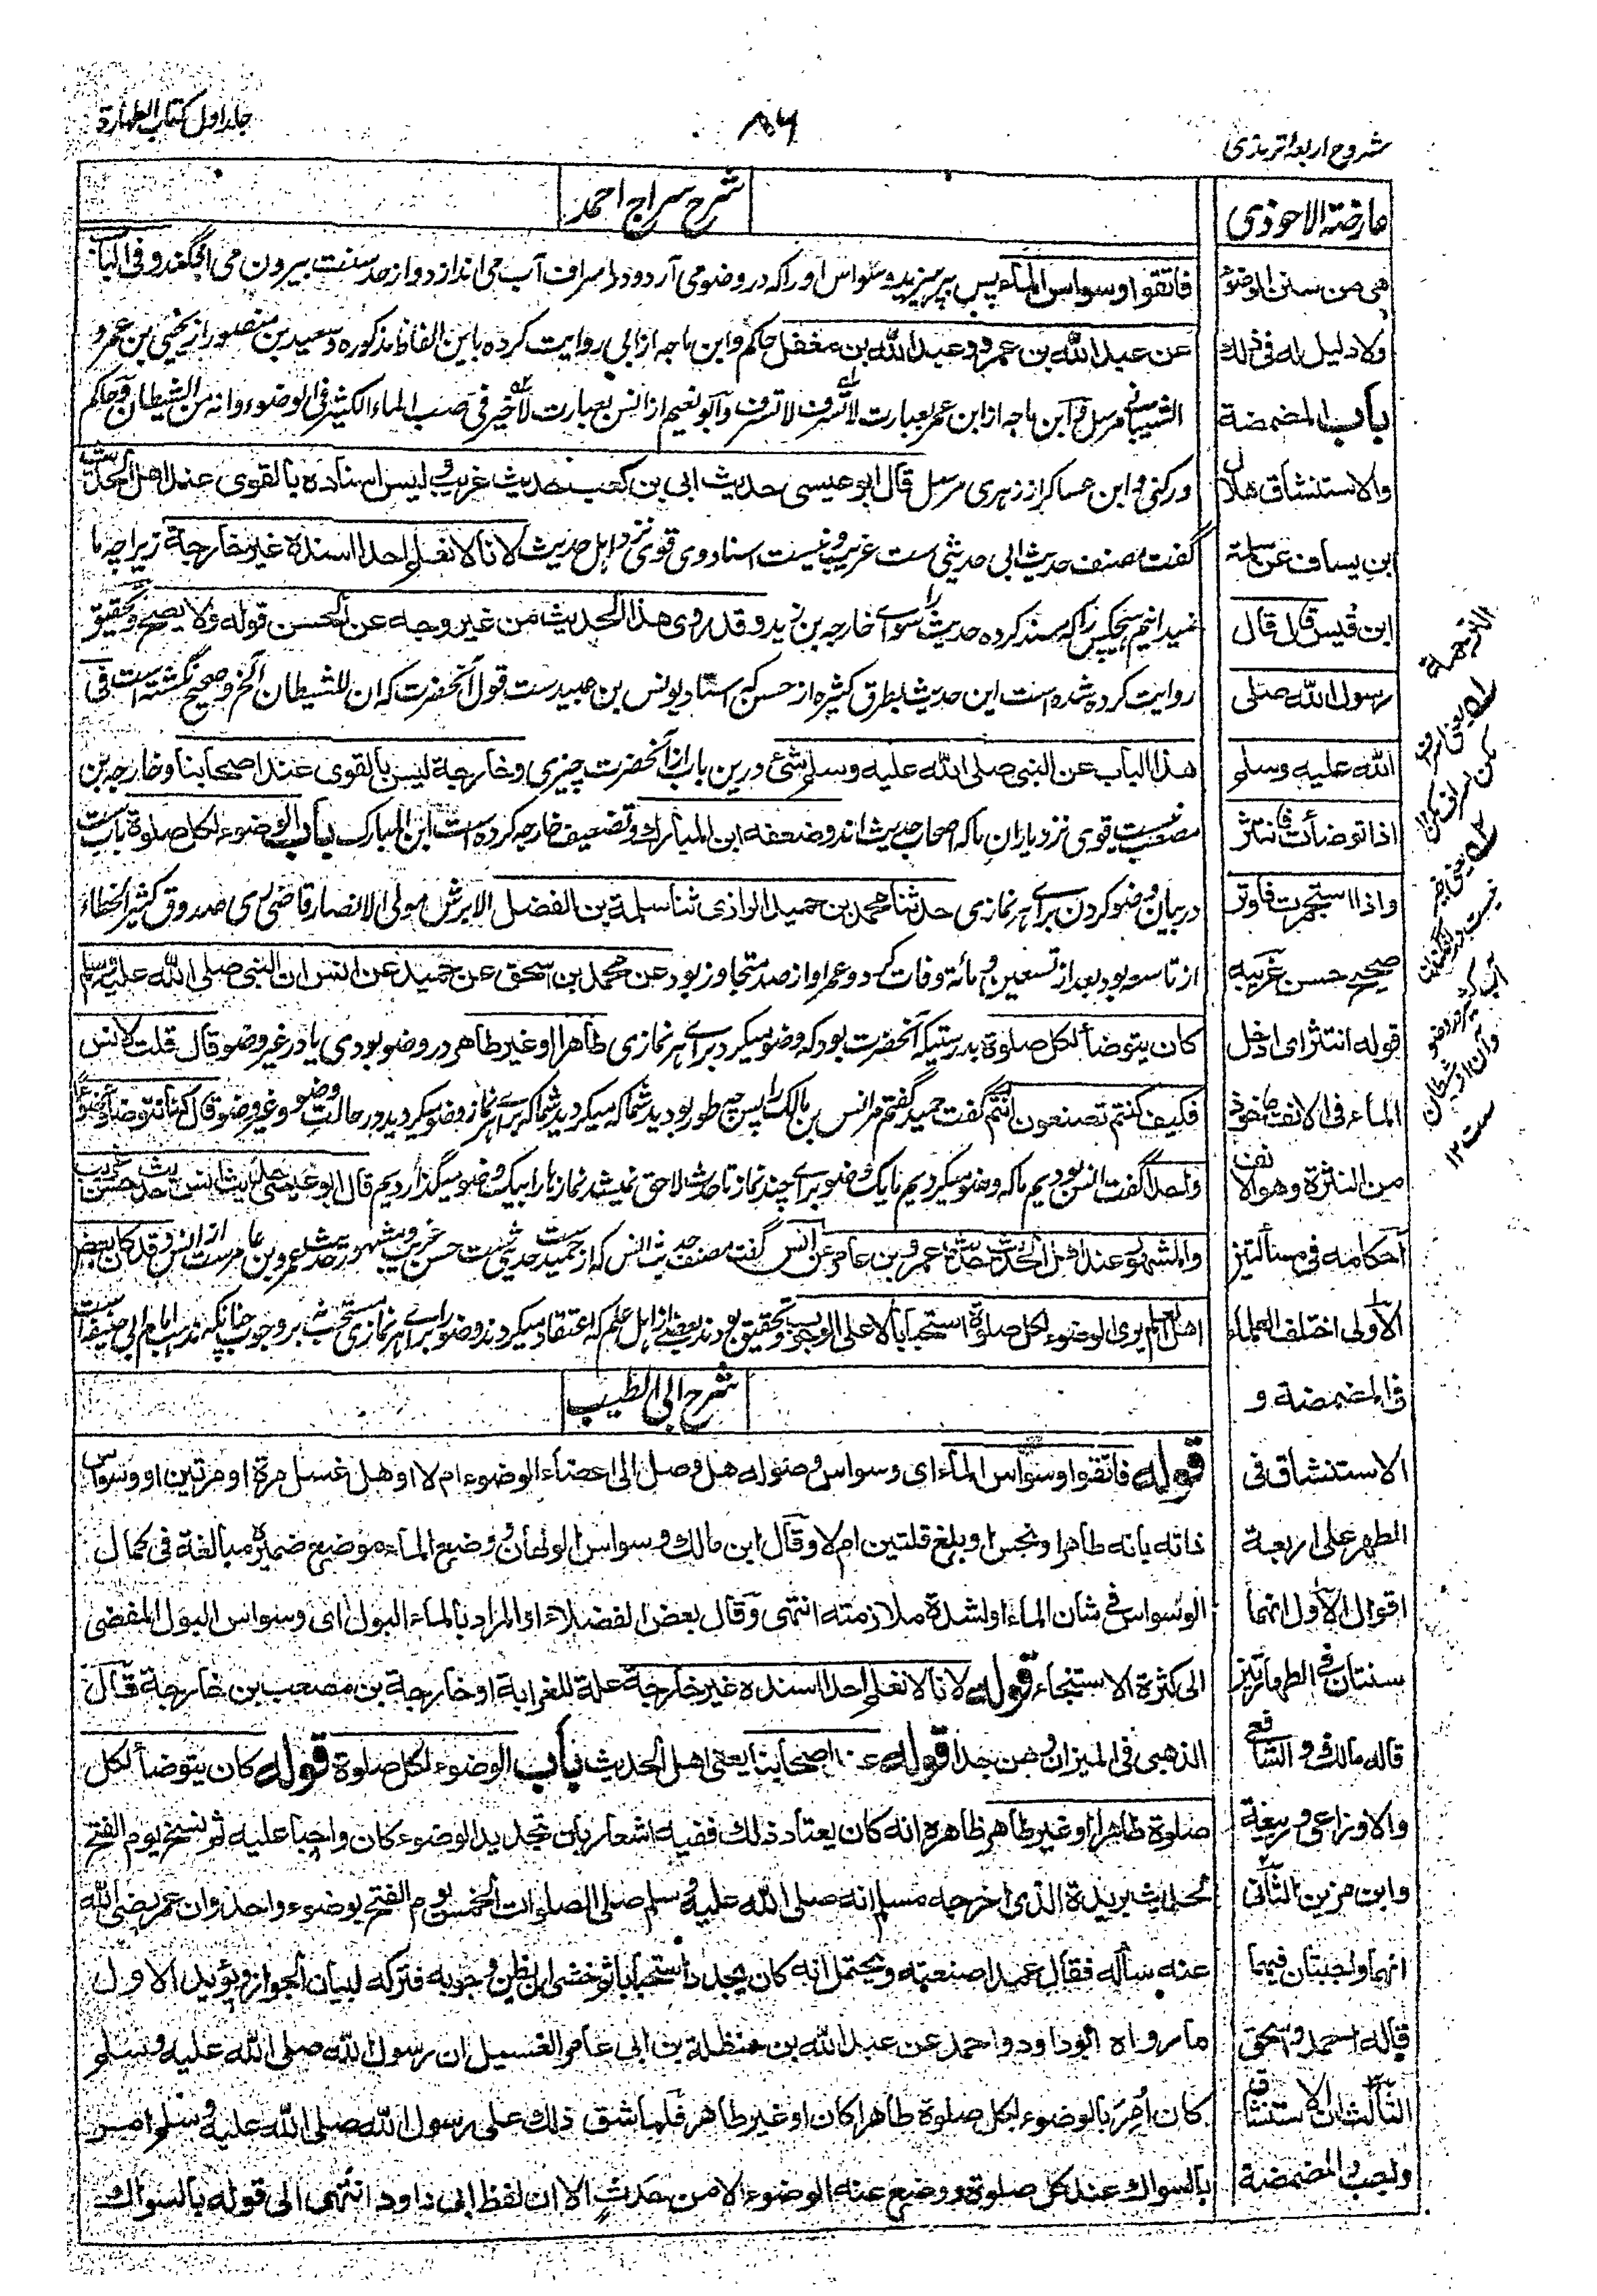 شروح اربعه ترمذی
۸۶
جلد اول کتاب الطهارة
عارضة الاحوذی
هی من سنن الوضوء
ولا دلیل له فی ذلك
باب المضمضة
والاستنشاق هلال
ابن یساف عن سلمة
ابن قیس قال قال
رسول الله صلی
الله علیه وسلم
اذا توضأت فانتثر
واذا استجمرت فاوتر
صحیح حسن غریبه
قوله انتثر ای ادخل
الماء فی الانف ماخوذ
من النثرة وهو الانف
احکامه فی مسألتین
الاولی اختلف العلماء
فی المضمضة و
الاستنشاق فی
الطهر علی اربعة
اقوال الاول انهما
سنتان فی الطهارتین
قاله مالك والشافعی
والاوزاعی وربیعة
وابن حزین الثانی
انهما واجبتان فیهما
قاله احمد واسحق
الثالث ان الاستنشاق
واجب والمضمضة
شرح سراج احمد
فاتقوا وسواس الماء پس بپرهیزید وسواس او را که در وضو می آرد و در اسراف آب می اندازد و از حد سنت بیرون می افگند وفی الباب
عن عبد الله بن عمرو وعبد الله بن مغفل حاکم وابن ماجه از ابی روایت کرده باین الفاظ مذکوره وسعید بن منصور از یحیی بن عمرو
الشیبانی مرسل وابن ماجه از ابن عمر بعبارت لا تسرف لا تسرف وابو نعیم از انس بعبارت لا خیر فی صب الماء الکثیر فی الوضوء وانه من الشیطان وحاکم
ورکنی وابن عساکر از زهری مرسل قال ابو عیسی حدیث ابی بن کعب حدیث غریب ولیس اسناده بالقوی عند اهل الحدیث
گفت مصنف حدیث ابی حدیثی ست غریب و نیست اسناد وی قوی نزد اهل حدیث لانا لا نعلم احدا اسنده غیر خارجة زیراچه ما
نمیدانیم هیچکس را که مسند کرده حدیث را سوای خارجه بن زید وقد روی هذا الحدیث من غیر وجه عن الحسن قوله ولا یصح وتحقیق
روایت کرده شده است این حدیث بطرق کثیره از حسن که استاد یونس بن عبید ست قول آنحضرت که ان للشیطان الخ و صحیح نگشته است فی
هذا الباب عن النبی صلی الله علیه وسلم شئ درین باب از آنحضرت چیزی وخارجة لیس بالقوی عند اصحابنا وخارجه بن
مصعب نیست قوی نزد یاران ما که اصحاب حدیث اند وضعفه ابن المبارك وتضعیف خارجه کرده است ابن المبارک باب الوضوء لکل صلوة باب ست
در بیان وضو کردن برای هر نمازی حدثنا محمد بن حمید الرازی ثنا سلمة بن الفضل الابرش مولی الانصار قاضی ری صدوق کثیر الخطاء
از تاسعه بود بعد از تسعین ومائة وفات کرد وعمر او از صد متجاوز بود عن محمد بن اسحق عن حمید عن انس ان النبی صلی الله علیه وسلم
کان یتوضأ لکل صلوة بدرستیکه آنحضرت بود که وضو میکرد برای هر نمازی طاهرا او غیر طاهر در وضو بودی یا در غیر وضو قال قلت لانس
فکیف کنتم تصنعون انتم گفت حمید گفتم مر انس بن مالک را پس چه طور بودید شما که میکردید شما که برای هر نماز وضو میکردید در حالت وضو وغیر وضو قال کنا نتوضأ وضوءا
واحدا گفت انس بودیم ما که وضو میکردیم ما یک وضو برای چند نماز تا حدث لاحق نمیشد نمازها را بیک وضو میگذاردیم قال ابو عیسی حدیث انس حدیث حسن غریب
والمشهور عند اهل الحدیث حدیث عمرو بن عامر عن انس گفت مصنف حدیث انس که از حمید ست حدیثی ست حسن غریب و مشهور حدیث عمرو بن عامر ست از انس وقد کان بعض
اهل العلم یری الوضوء لکل صلوة استحبابا لا علی الوجوب و تحقیق بودند بعضی از اهل علم که اعتقاد میکردند وضو را برای هر نمازی مستحب نه بر وجوب چنانکه مذهب امام ابی حنیفه است
شرح ابی الطیب
قوله فاتقوا وسواس الماء ای وسواس وضوئه هل وصل الی اعضاء الوضوء ام لا او هل غسل مرة او مرتین او وسواس
ذاته بانه طاهر او نجس او بلغ قلتین ام لا وقال ابن مالك وسواس الولهان وضع الماء موضع ضمیره مبالغة فی کمال
الوسواس فی شان الماء او لشدة ملازمته انتهی وقال بعض الفضلاء او المراد بالماء البول ای وسواس البول المفضی
الی کثرة الاستنجاء قوله لانا لا نعلم احدا اسنده غیر خارجة علة للغرابة او خارجة بن مصعب بن خارجة قال
الذهبی فی المیزان وهن جدا قوله عند اصحابنا یعنی اهل الحدیث باب الوضوء لکل صلوة قوله کان یتوضأ لکل
صلوة طاهرا او غیر طاهر ظاهره انه کان یعتاد ذلك ففیه اشعار بان تجدید الوضوء کان واجبا علیه ثم نسخ یوم الفتح
لحدیث بریدة الذی اخرجه مسلم انه صلی الله علیه وسلم صلی الصلوات الخمس یوم الفتح بوضوء واحد وان عمر رضی الله
عنه سأله فقال عمدا صنعته ویحتمل انه کان یجدد استحبابا ثم خشی ان یظن وجوبه فترکه لبیان الجواز ویؤید الاول
ما رواه ابو داود واحمد عن عبد الله بن حنظلة بن ابی عامر الغسیل ان رسول الله صلی الله علیه وسلم
کان اُمِرَ بالوضوء لکل صلوة طاهرا کان او غیر طاهر فلما شق ذلك علی رسول الله صلی الله علیه وسلم امر
بالسواك عند کل صلوة ووضع عنه الوضوء الا من حدث الا ان لفظ ابی داود انتهی الی قوله بالسواك
الترجمة